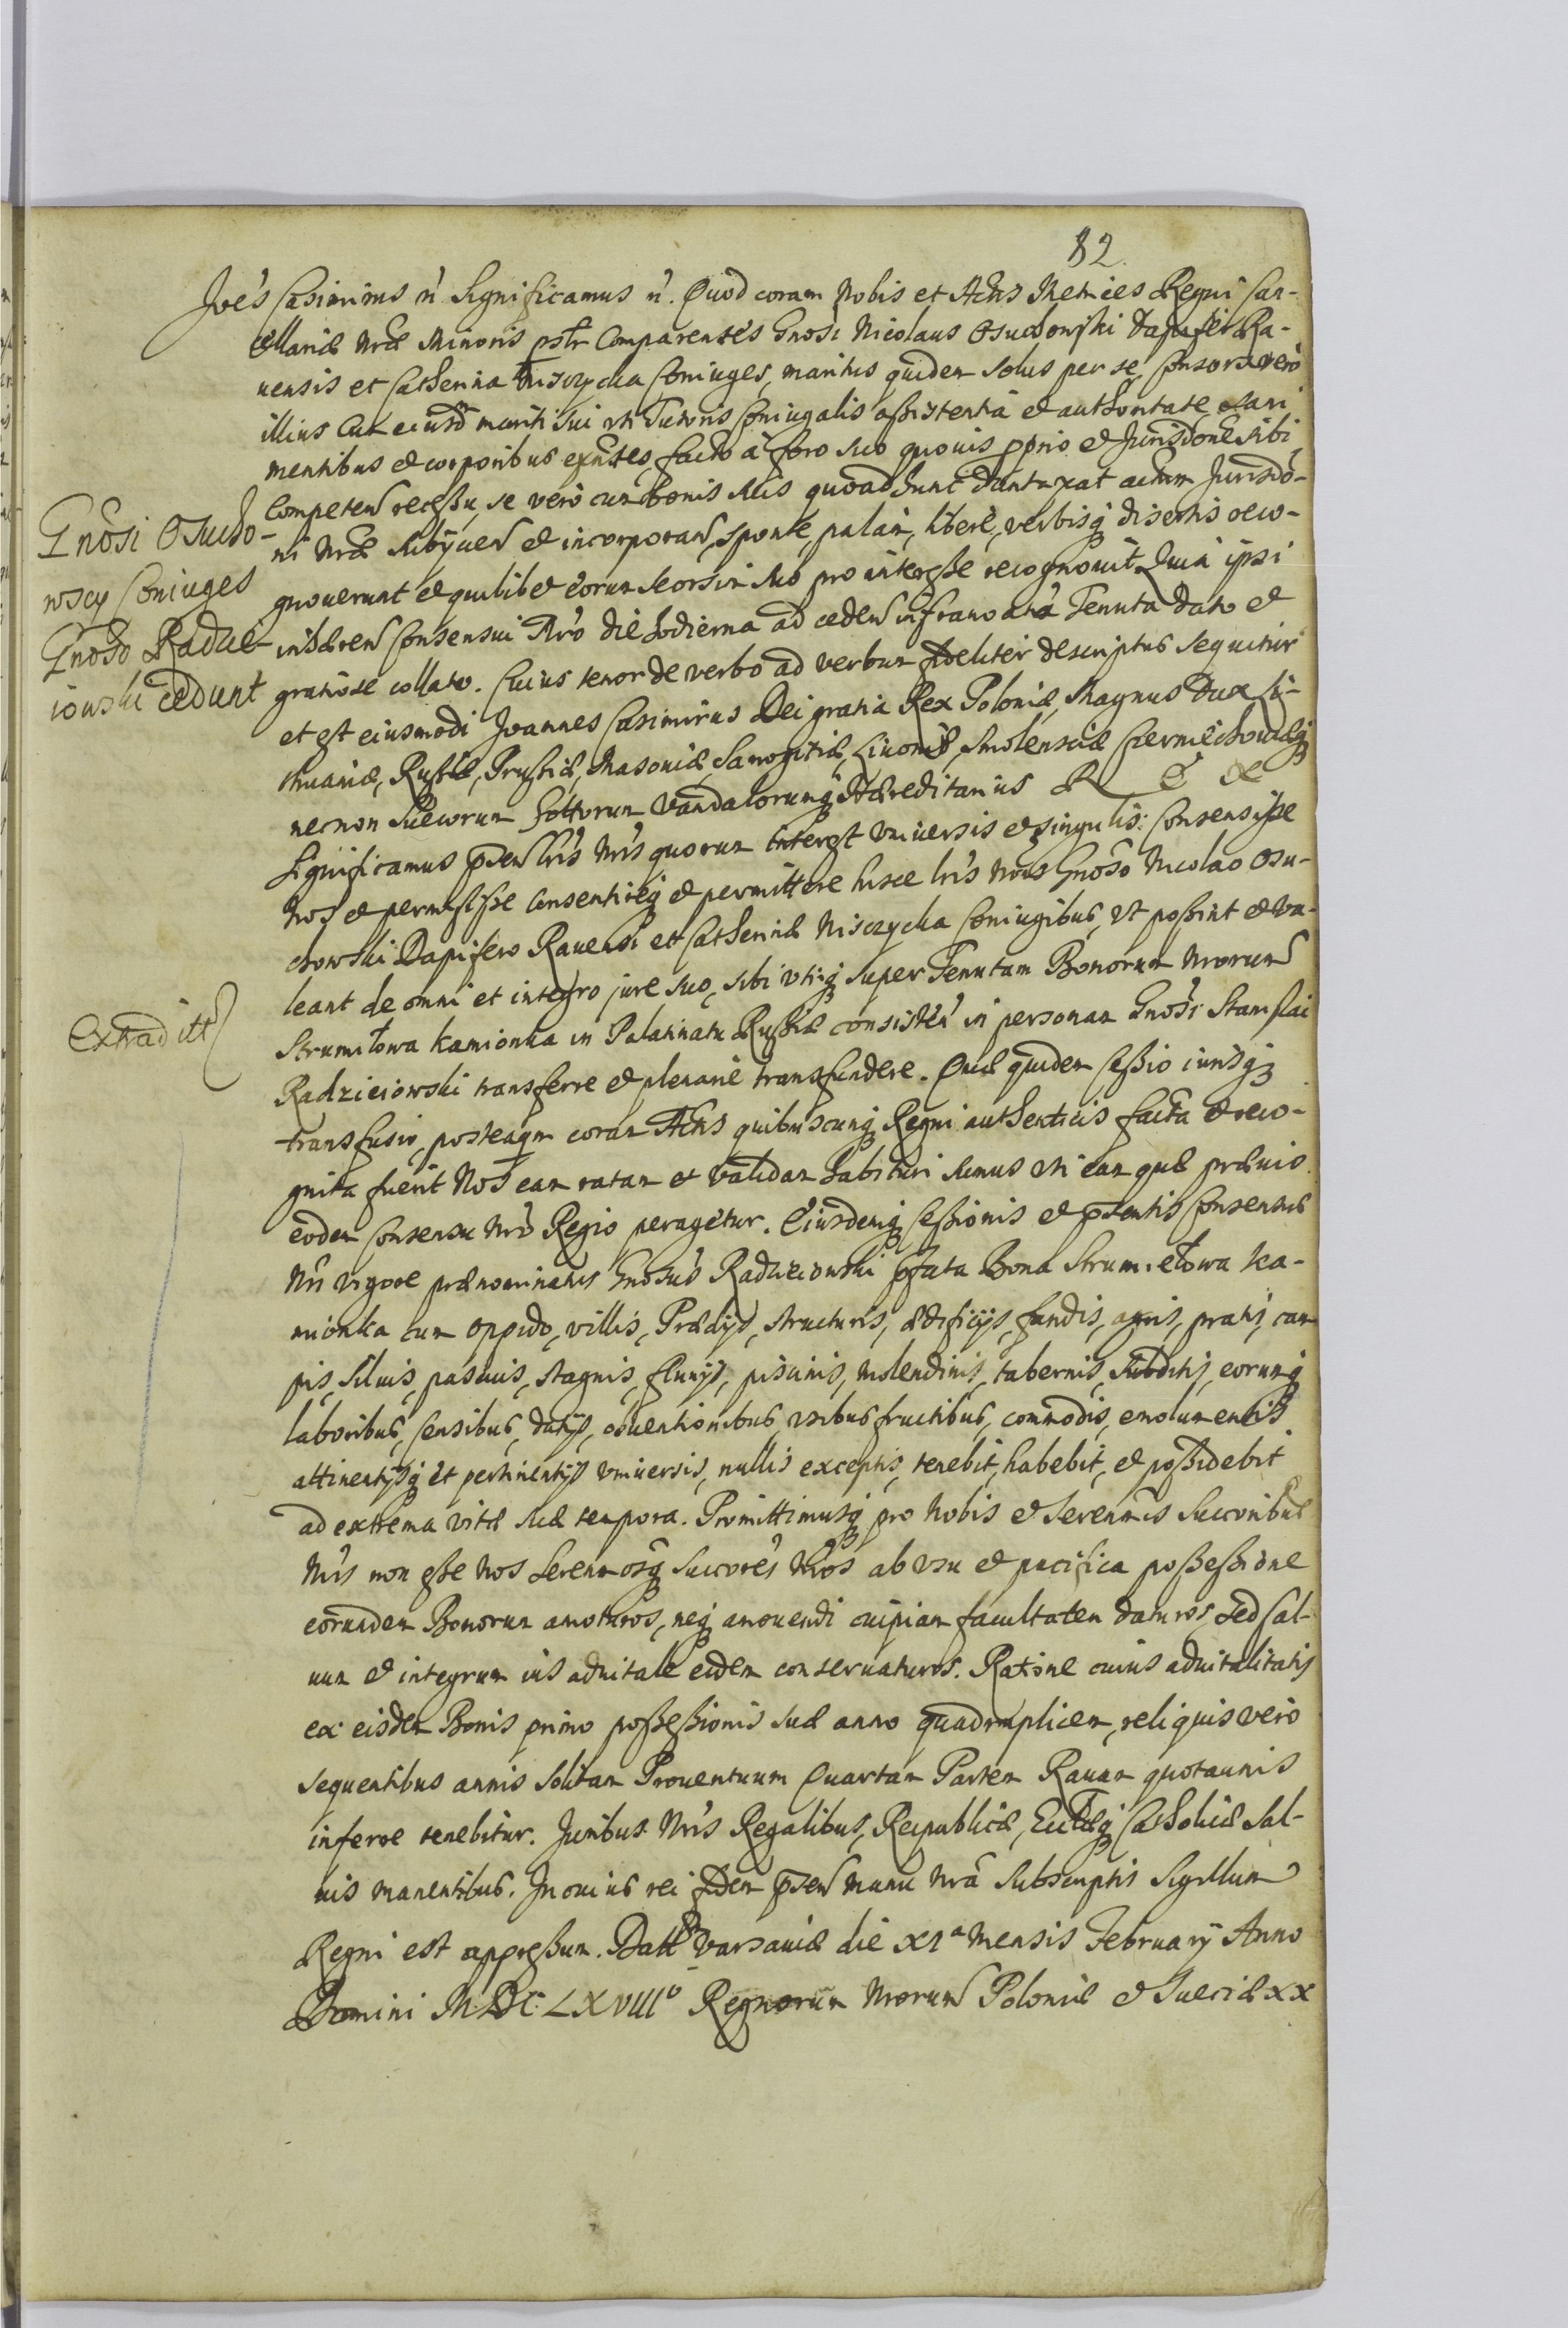 82.
Joe's Casimirus n. Significamus n. Quod coram Nobis et Actis Metrices Regni Can-
cellariæ Nræ Minoris pstr Comparentes Gnosi Nicolaus Osuchowski Dapifer Ra-
uensis et Catherina Niszczycka Coniuges, maritus quidem solus per se, Consors vero
illius Cum eiusd mariti sui uti Tutoris Coniugalis assistentia et authoritate, sani
mentibus et corporibus exntes, facto a foro suo quouis pprio et Jurisdone sibi
Competen recessu, se vero cum bonis suis quoad hunc duntaxat actum Jurisdo-
ni Nræ subijcien et incorporan, sponte, palam, libere, verbisq disertis reco-
gnouerunt et quilibet eorum seorsim suo pro interesse recognouit Quia ipsi
inhæren Consensui Nro die hodierna ad ceden infranoata Tenuta dato et
gratiose collato. Cuius tenor de verbo ad verbum fideliter descriptus sequitur
et est eiusmodi Joannes Casimirus Dei gratia Rex Poloniæ, Magnus Dux Li-
thuaniæ, Russiæ, Prussiæ, Masouiæ, Samogitiæ, Liuoniæ, Smolensciæ Czerniechouiæq
necnon Suecorum Gottorum Vandalorumq Hæreditarius R
Significamus psen lris Nris quorum interest vniuersis et singulis: Consensisse
Nos et permisisse Consentireq et permittere hisce lris Nris Gnoso Nicolao Osu-
chowski Dapifero Rauensi et Catherinæ Niszczycka Coniugibus, vt possint et va-
leant de omni et integro jure suo, sibi vtriq super Tenutam Bonorum Nrorum
Strumiłowa Kamionka in Palatinatu Russiæ consisten in personam Gnosi Stanislai
Radzieiowski transferre et plenarie transfundere. Quæ quidem Cessio iurisq
transfusio, posteaqm coram Actis quibuscunq Regni authenticis facta et reco-
gnita fuerit Nos eam ratam et validam habituri sumus uti eam quæ præuio
eodem Consensu Nro Regio peragetur. Eiusdemq Cessionis et psentis Consensus
Nri vigore prænominatus Gnosus Radzieiowski pfata Bona Strumiełowa Ka-
mionka cum oppido, villis, Prædijs, structuris, ædificijs, fundis, agris, pratis, cam
pis, siluis, pascuis, stagnis, fluuijs, piscinis, molendinis, tabernis, subditis, eorumq
laboribus, Censibus, datijs, obuentionibus, vsibus fructibus, commodis, emolumentis
attinentijsq et pertinentijs vniuersis, nullis exceptis, tenebit, habebit, et possidebit
ad extrema vitæ suæ tempora. Promittimusq pro Nobis et Serenmis Succoribus
Nris non esse Nos Serenmosq Succores Nros ab vsu et pacifica possessione
eorundem Bonorum amoturos, neq amouendi cuipiam facultatem daturos, sed sal-
uum et integrum ius aduitale eidem conseruaturos. Ratione cuius aduitalitatis
ex eisdem Bonis primo possessionis suæ anno quadruplicem, reliquis vero
sequentibus annis solitam Prouentuum Quartam Partem Rauam quotannis
inferre tenebitur. Juribus Nris Regalibus, Reipublicæ, Ecclæq Catholicæ sal-
uis manentibus. In cuius rei fidem psen manu Nra subscriptis Sigillum
Regni est appressum. Datt Varsauiæ die XIa Mensis February Anno
Domini MDCLXVIIIo Regnorum Nrorum Poloniæ et Sueciæ XX
Gnosi Osucho-
wscy Coniuges
Gnoso Radzie-
iowski cedunt
Extraditt